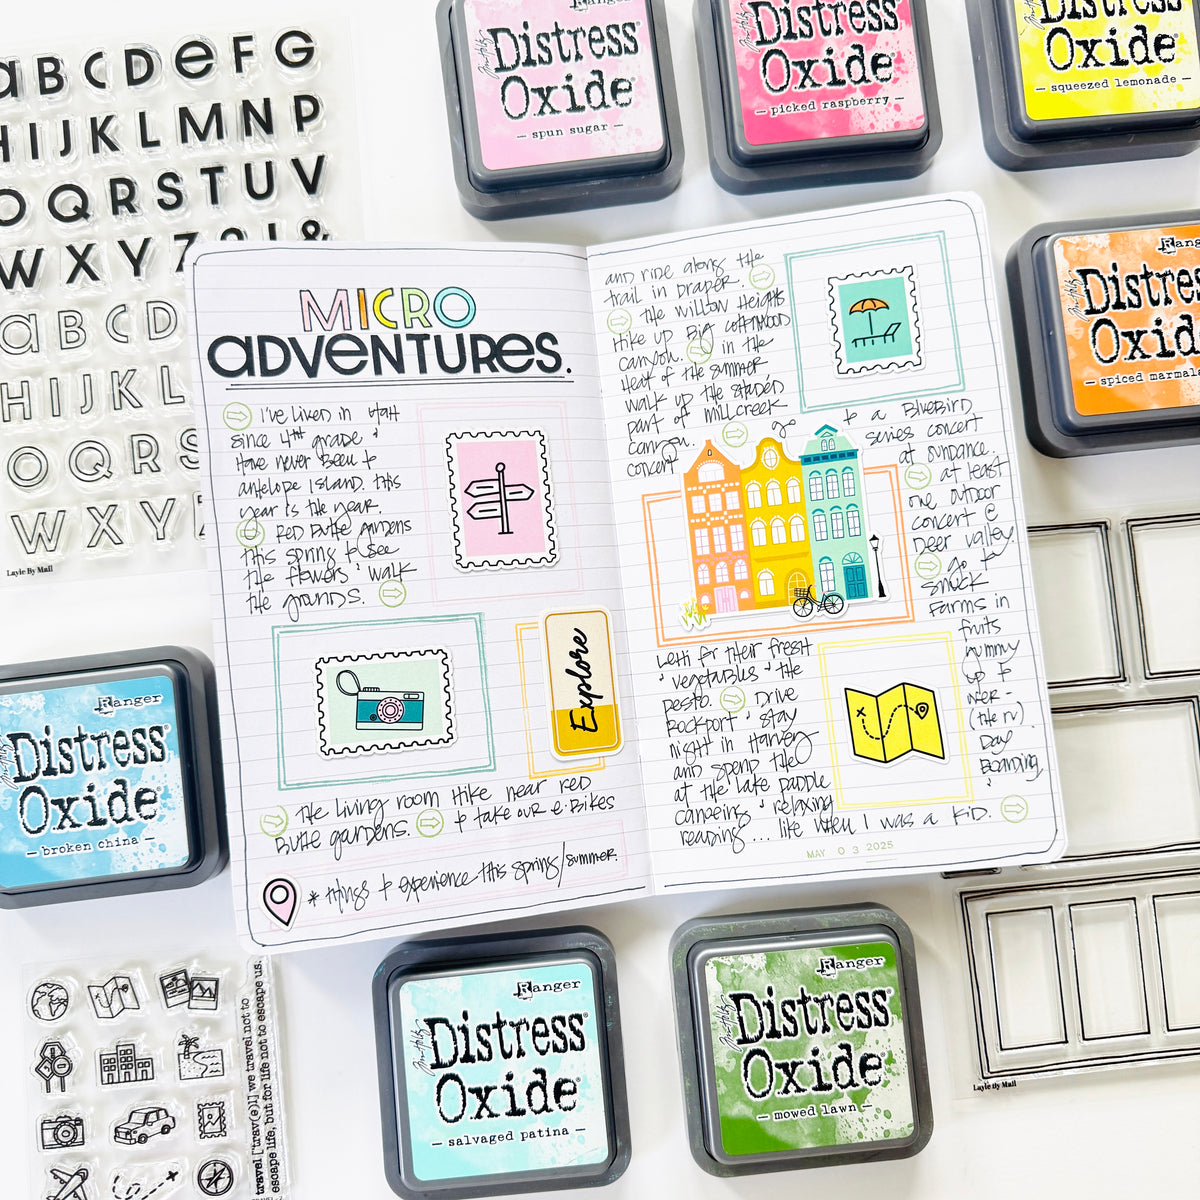 aBCDeFG
HIJKLMNP
OQRSTUV
WXYZ?!&
aBCD
HIJKL
OQRS
WXYZ
Layle By Mail
Ranger
Distress
Oxide
— spun sugar —
Distress
Oxide
— picked raspberry —
Distress
Oxide
— squeezed lemonade —
Ranger
Distress
Oxide
— spiced marmala
MICRO
aDVeNTUReS.
I've lived in Utah
since 4th grade &
have never been to
antelope island. this
year is the year.
Red Butte Gardens
this spring to see
the flowers & walk
the grounds.
Explore
the living room hike near red
Butte gardens. to take our e-bikes
* things to experience this spring/summer.
and ride along the
trail in Draper.
the willow heights
hike up Big Cottonwood
canyon. in the
heat of the summer,
walk up the shaded
part of millcreek
canyon. go
concert
to a Bluebird
series concert
at sundance.
at least
one outdoor
concert @
Deer Valley.
go to
Smuck
Farms in
Lehi for their fresh
fruits
& vegetables & the
yummy
pesto. Drive
up to
Rockport & stay
night in Harvey
(the rv)
and spend the
Day
at the lake paddle
Boarding,
canoeing & relaxing
reading... like when I was a kid.
MAY 03 2025
Ranger
Distress
Oxide
— broken china —
Ranger
Distress
Oxide
— salvaged patina —
Ranger
Distress
Oxide
— mowed lawn —
Layle By Mail
travel ['trav(ə)l] we travel not to
escape life, but for life not to escape us.